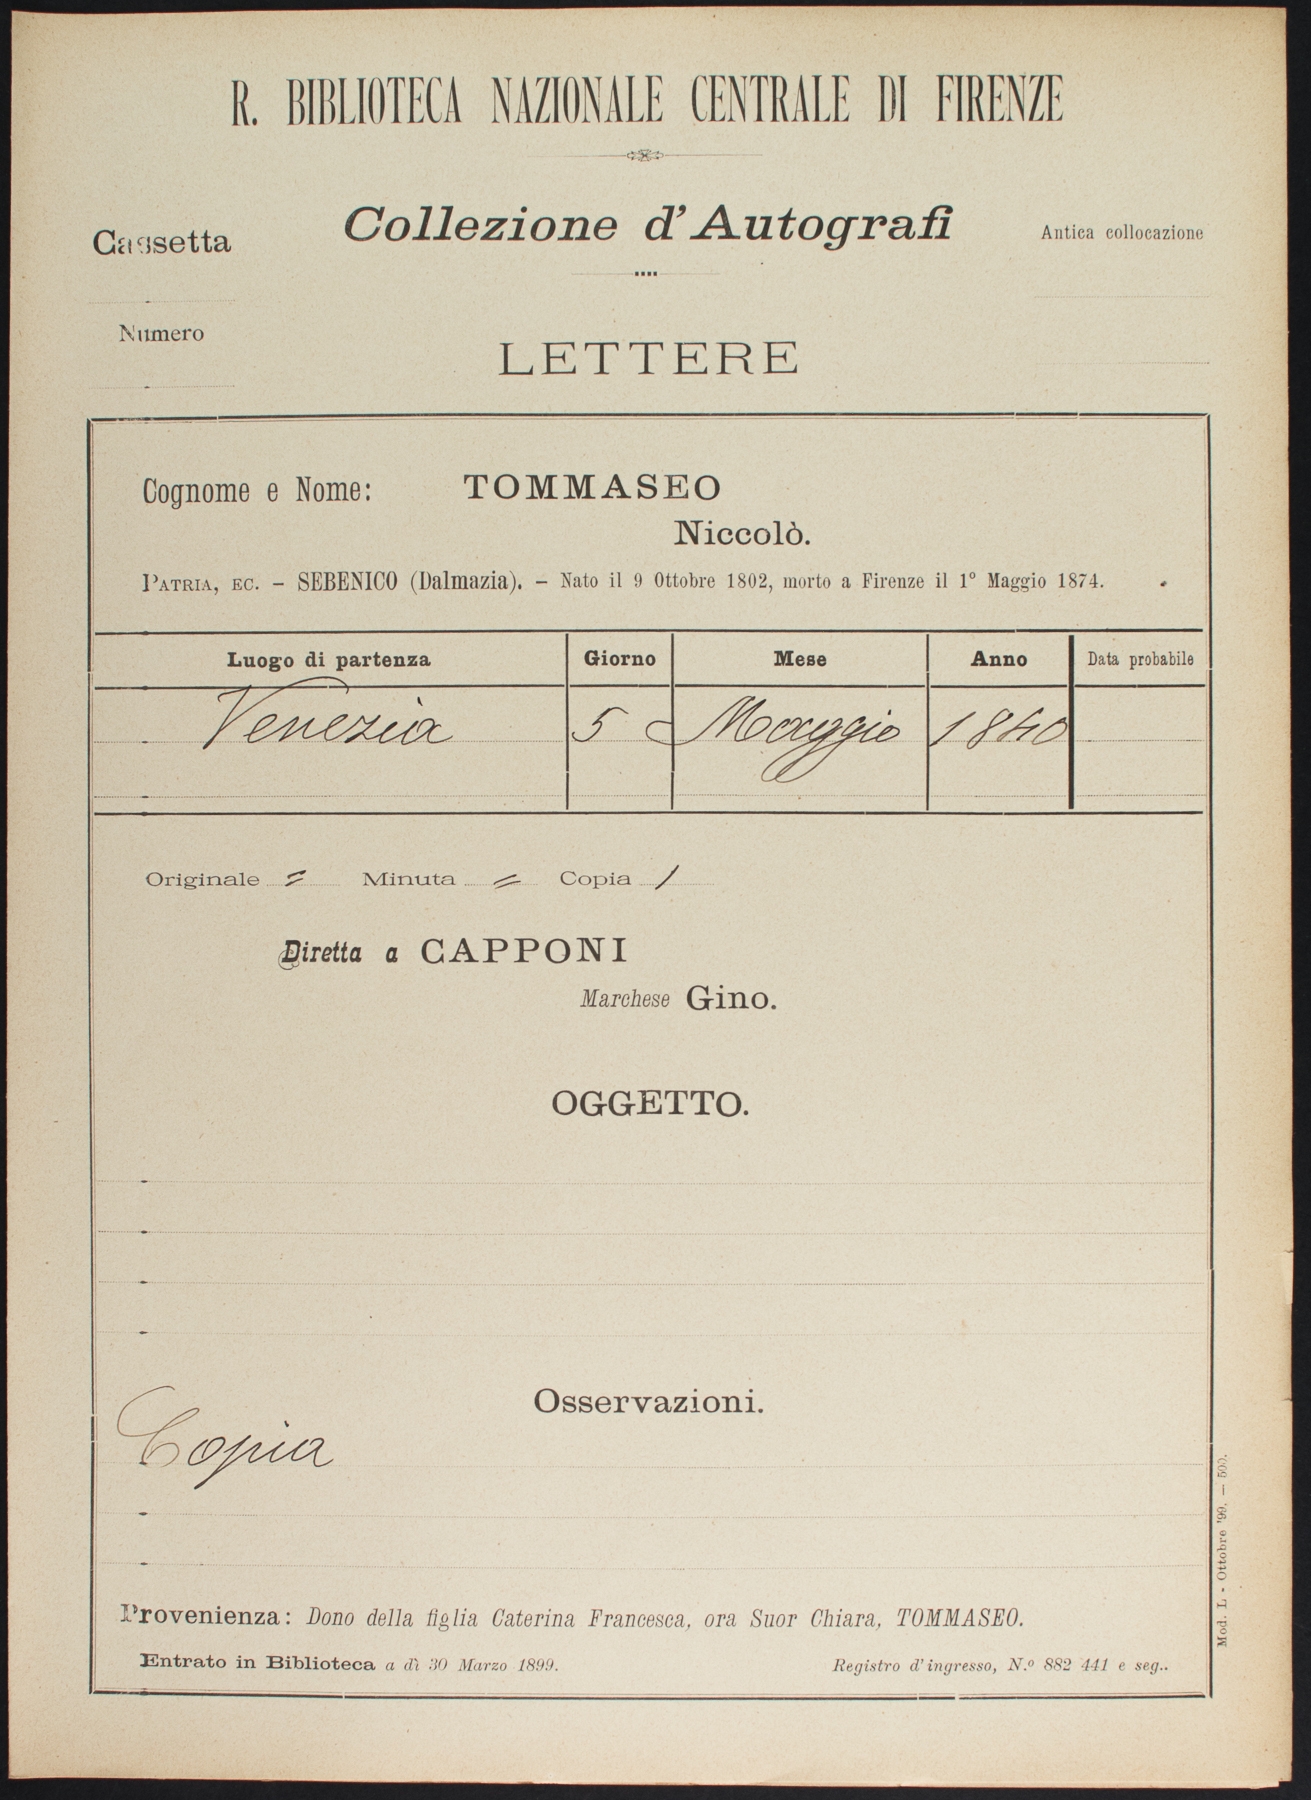 R. BIBLIOTECA NAZIONALE CENTRALE DI FIRENZE
Collezione d'Autografi
Cassetta
Antica collocazione
Numero
LETTERE
Cognome e Nome: TOMMASEO
Niccolò.
PATRIA, EC. – SEBENICO (Dalmazia). – Nato il 9 Ottobre 1802, morto a Firenze il 1° Maggio 1874.
Luogo di partenza Giorno Mese Anno Data probabile
Venezia 5 Maggio 1840
Originale = Minuta = Copia /
Diretta a CAPPONI
Marchese Gino.
OGGETTO.
Osservazioni.
Copia
Provenienza: Dono della figlia Caterina Francesca, ora Suor Chiara, TOMMASEO.
Entrato in Biblioteca a dì 30 Marzo 1899. Registro d'ingresso, N.º 882 441 e seg..
Mod. L - Ottobre '99. — 500.